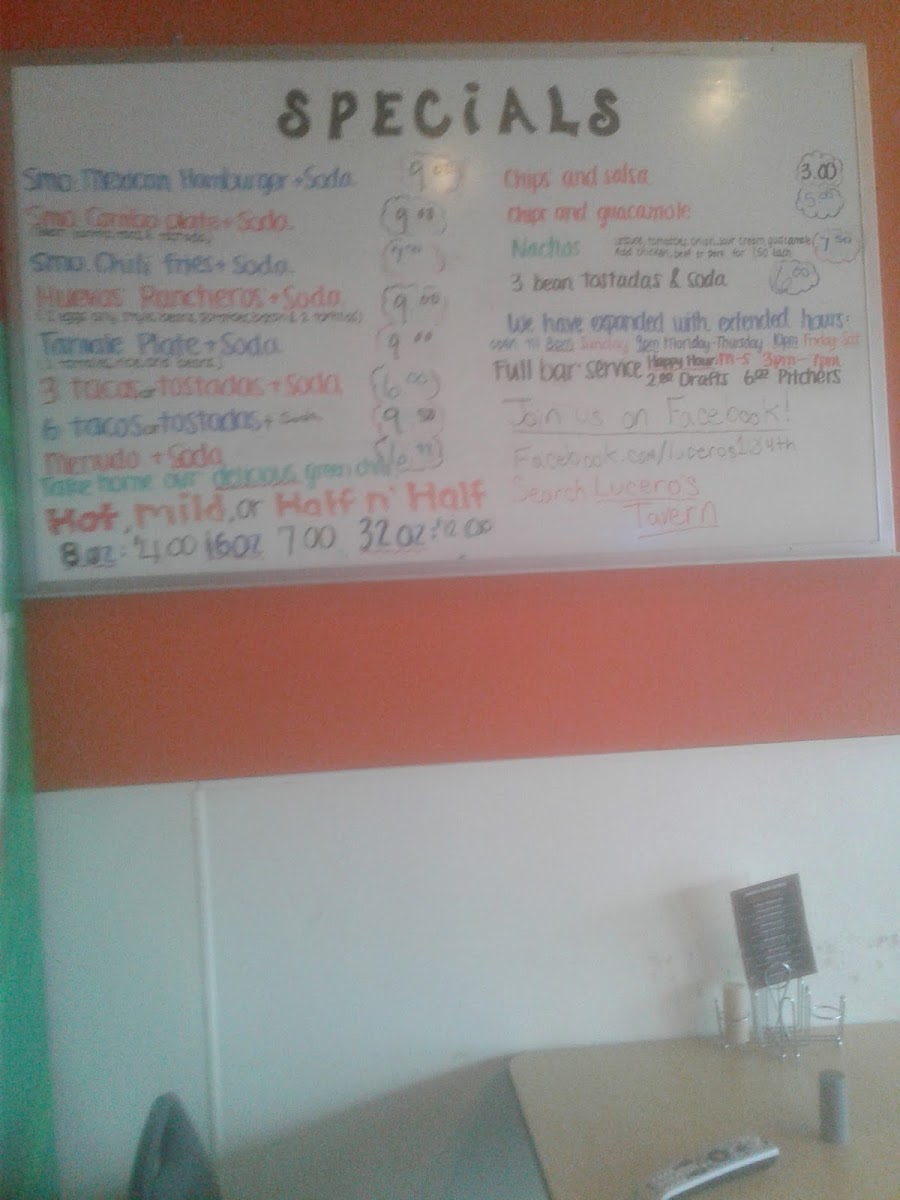 SPECiALS
Smo. Mexican Hamburger + Soda 9 00
Smo. Combo plate + Soda 9 00
Smo. Chili fries + Soda
Huevos Rancheros + Soda 9 00
Tamale Plate + Soda 9 00
3 tacos or tostadas + Soda 6 00
6 tacos or tostadas + Soda 9 50
Menudo + Soda
Take home our delicious green chile
Hot, Mild, or Half n' Half
8 oz: 4.00 16oz 7 00 32 oz: 12 00
Chips and salsa 3.00
Chips and guacamole 5 00
Nachos Lettuce, tomatoes, onion, sour cream, guacamole 7 50
Add chicken, beef or pork for 1.50 each
3 bean tostadas & soda 6 00
We have expanded with extended hours:
open til 8pm Sunday 9pm Monday-Thursday 10pm Friday-Sat
Full bar service Happy Hour: M-S 3pm-7pm
2 00 Drafts 6 00 Pitchers
Join us on Facebook!
Facebook.com/luceros134th
Search Luceros
Tavern